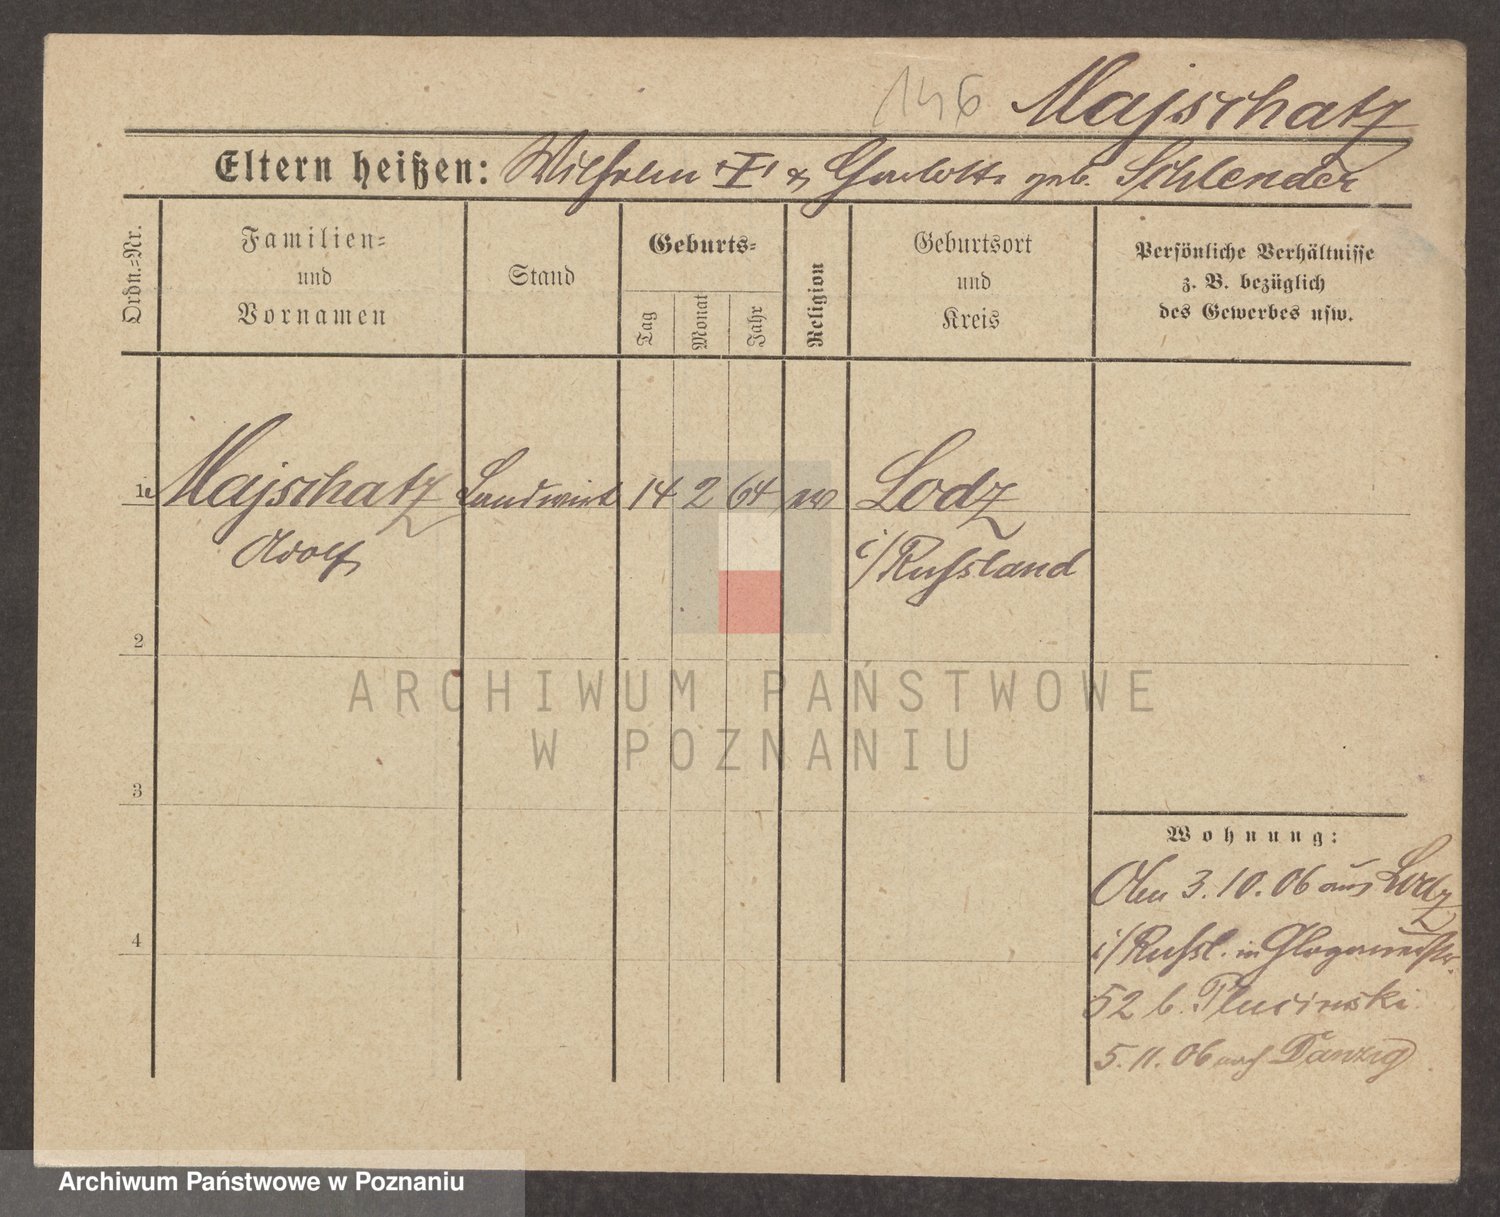 146 Majschatz
Eltern heißen: Wilhelm "I" & Charlotte geb. Schlender
Ordn.=Nr.
Familien=
und
Vornamen
Stand
Geburts=
Tag
Monat
Jahr
Religion
Geburtsort
und
Kreis
Persönliche Verhältnisse
z. B. bezüglich
des Gewerbes usw.
1 Majschatz Landwirt 14 2 64 ev Lodz
Adolf i/Russland
2
ARCHIWUM PAŃSTWOWE
W POZNANIU
3
Wohnung:
3.10.06 aus Lodz
i/Russl. in Glogauerstr.
4
52 b. Plucinski
5.11.06 nach Danzig
Archiwum Państwowe w Poznaniu